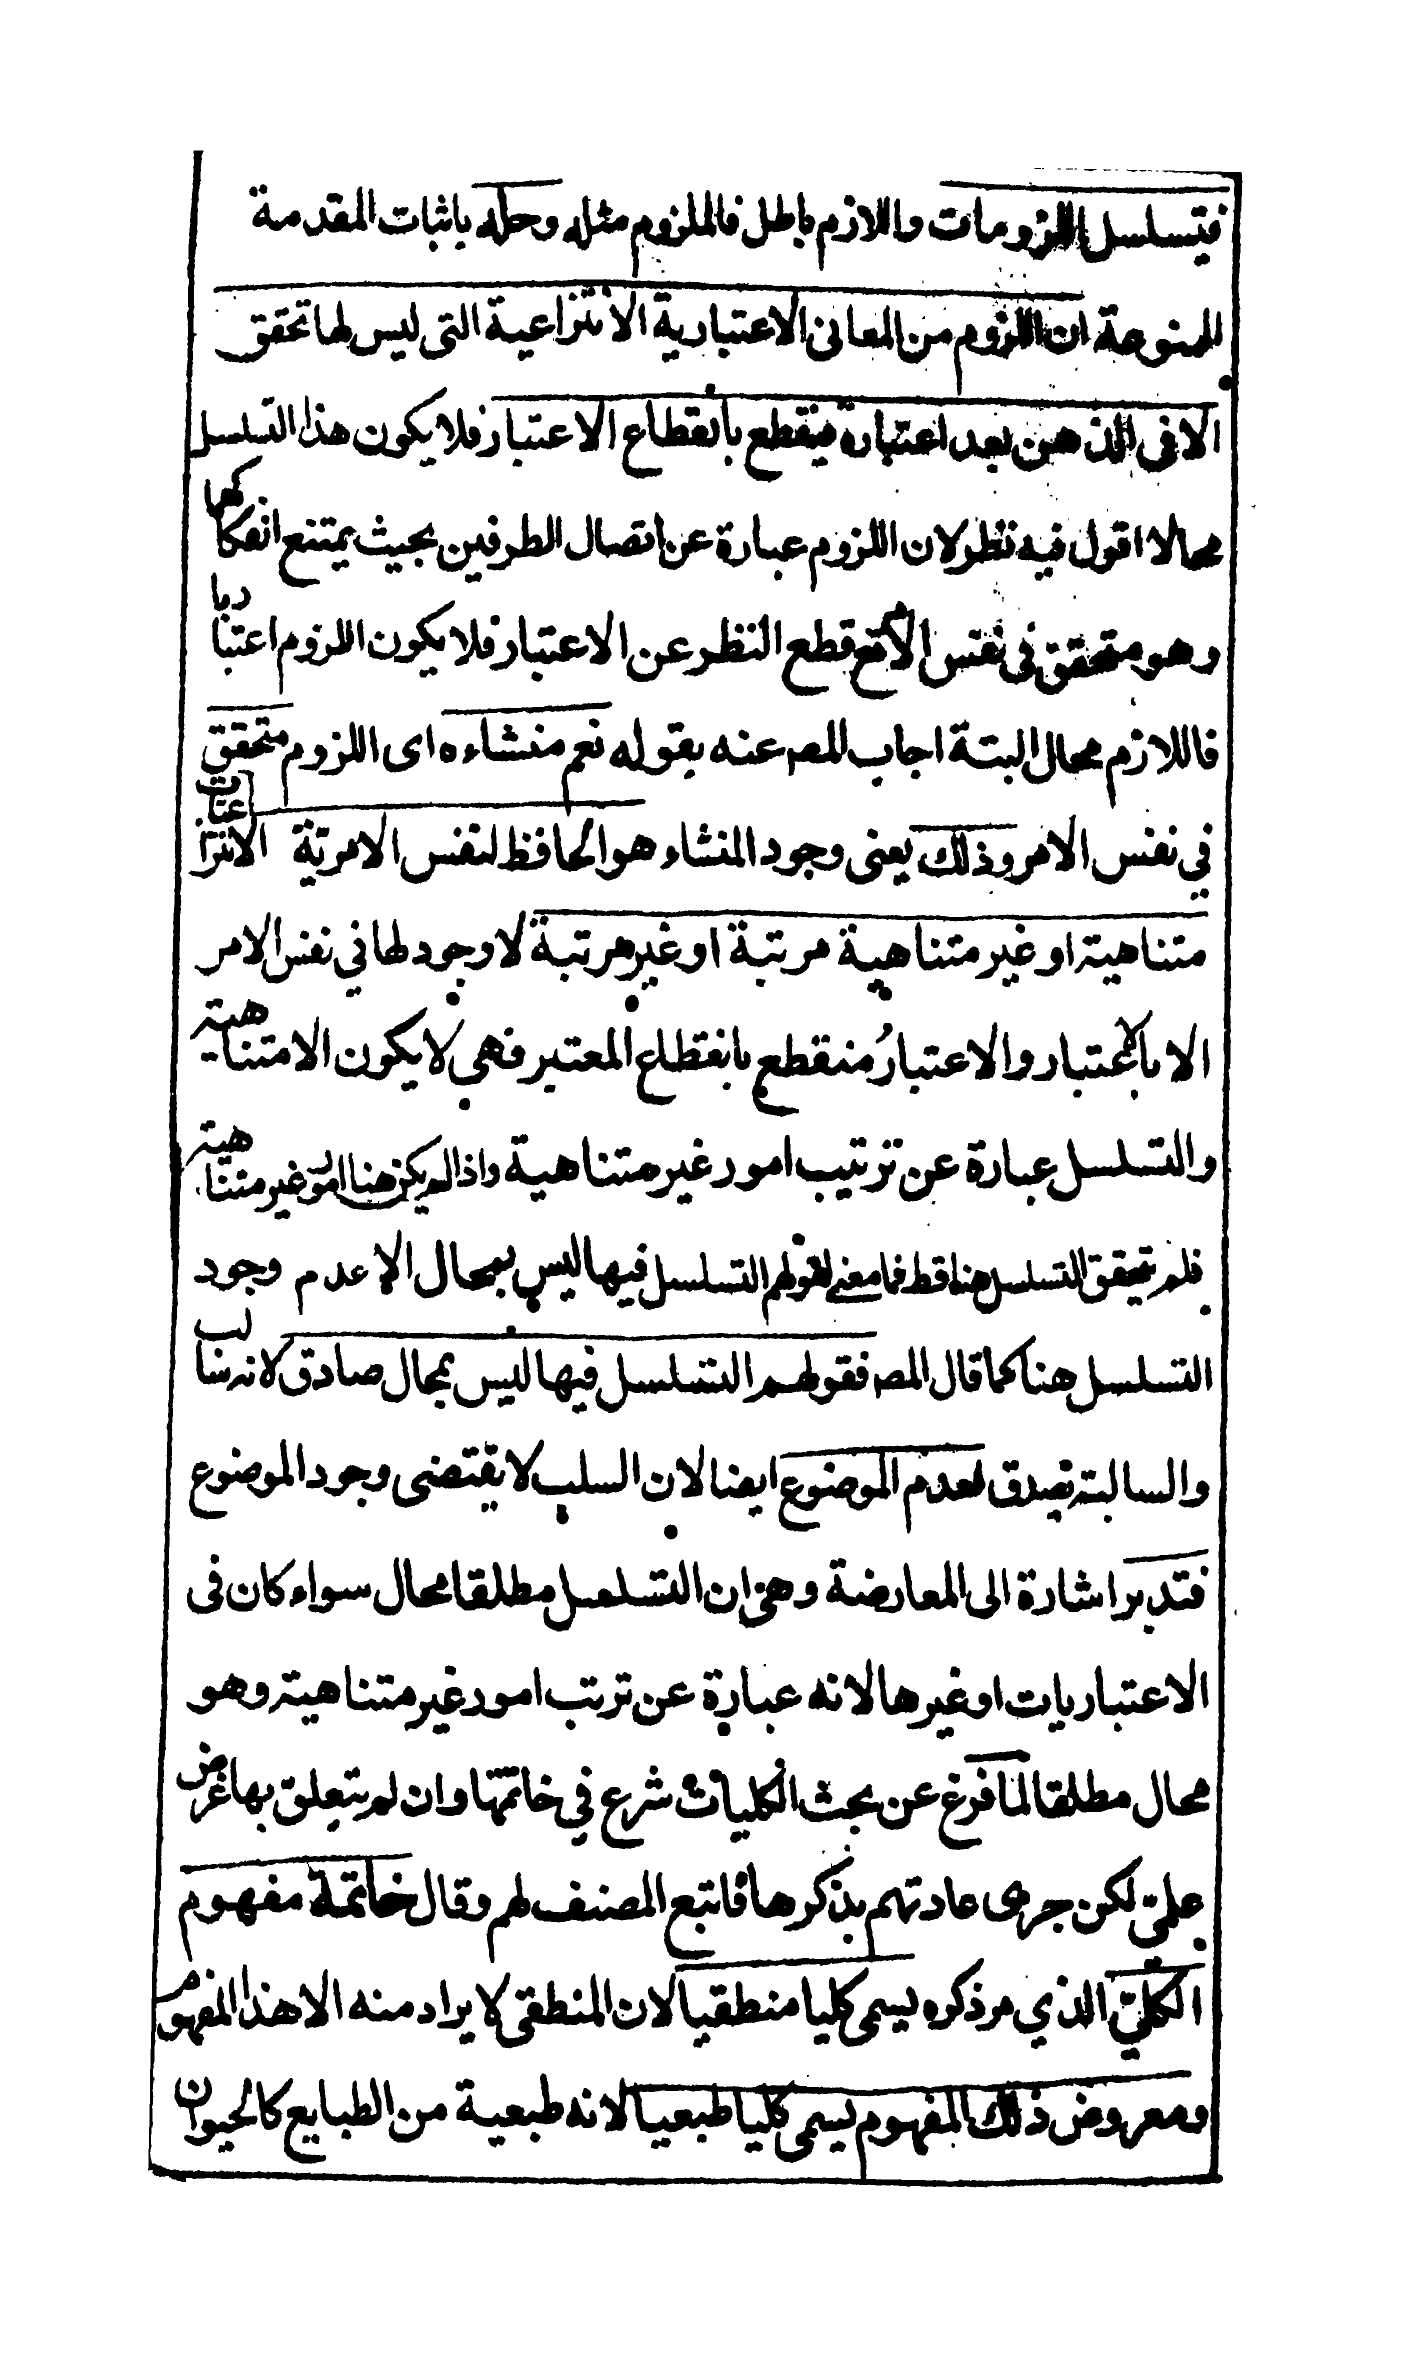 فتسلسل اللزومات واللازم باطل فالملزوم مثله وحله باثبات المقدمة
الممنوعة ان اللزوم من المعانى الاعتبارية الانتزاعية التى ليس لها تحقق
الا فى الذهن بعد اعتباره فينقطع بانقطاع الاعتبار فلا يكون هذا التسلسل
محالا اقول فيه نظر لان اللزوم عبارة عن اتصال الطرفين بحيث يمتنع انفكاكهما
وهو متحقق في نفس الامر مع قطع النظر عن الاعتبار فلا يكون اللزوم اعتباريا
فاللازم محال البتة اجاب المصـ عنه بقوله نعم منشاءه اى اللزوم متحقق
في نفس الامر وذلك يعنى وجود المنشاء هو الحافظ لنفس الامرية الانتزاعيات
متناهية او غير متناهية مرتبة او غير مرتبة لا وجود لها في نفس الامر
الا بالاعتبار والاعتبار منقطع بانقطاع المعتبر فهي لا يكون الا متناهية
والتسلسل عبارة عن ترتيب امور غير متناهية واذا لم يكن هنا امور غير متناهية
فلم يتحقق التسلسل هنا قط فما معنى لقولهم التسلسل فيها ليس بمحال الا عدم وجود
التسلسل هنا كما قال المصـ فقولهم التسلسل فيها ليس بمحال صادق لانه سالب
والسالبة يصدق لعدم الموضوع ايضا لان السلب لا يقتضى وجود الموضوع
فتدبر اشارة الى المعارضة وهى ان التسلسل مطلقا محال سواء كان فى
الاعتباريات او غيرها لانه عبارة عن ترتب امور غير متناهية وهو
محال مطلقا لما فرغ عن بحث الكليات شرع في خاتمتها وان لم يتعلق بها غرض
علمىّ لكن جرى عادتهم بذكرها فاتبع المصنف لهم وقال خاتمة مفهوم
الكلىّ الذي مر ذكره يسمى كليا منطقيا لان المنطقى لا يراد منه الا هذا المفهوم
ومعروض ذلك المفهوم يسمى كليا طبعيا لانه طبعية من الطبايع كالحيوان